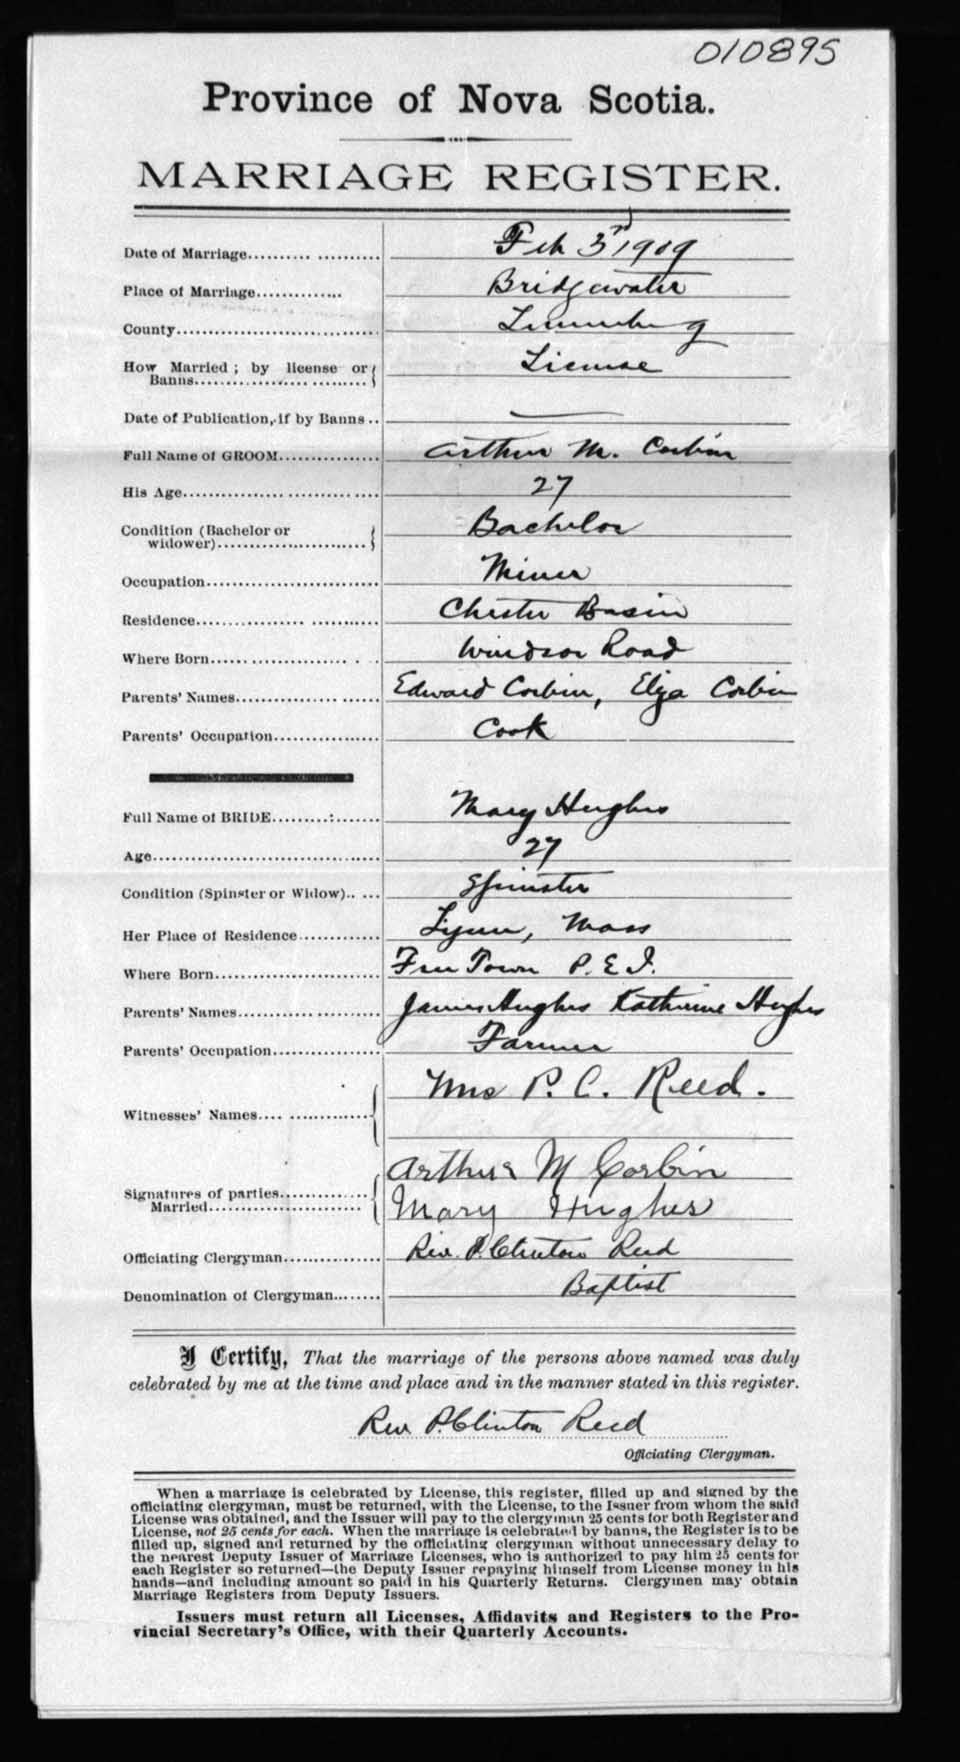 010895
Province of Nova Scotia.
MARRIAGE REGISTER.
Date of Marriage.......... .......... Feb 3rd, 1909
Place of Marriage.............. Bridgewater
County................................ Lunenburg
How Married; by license or License
Banns.................. .........
Date of Publication, if by Banns .. —
Full Name of GROOM............... Arthur M. Corbin
His Age................................ 27
Condition (Bachelor or Bachelor
widower).......................
Occupation........................... Miner
Residence................ ........... Chester Basin
Where Born...... ................ . . Windsor Road
Parents' Names................ ...... Edward Corbin, Eliza Corbin
Parents' Occupation................ Cook
Full Name of BRIDE.........:....... Mary Hughes
Age..................................... 27
Condition (Spinster or Widow).. ... Spinster
Her Place of Residence............ Lynn, Mass
Where Born......................... Free Town P.E.I.
Parents' Names............ ........... James Hughes Katherine Hughes
Parents' Occupation................ Farmer
Witnesses' Names.... ............. Mrs P. C. Reed.
Signatures of parties.............. Arthur M Corbin
Married........................ Mary Hughes
Officiating Clergyman............... Rev. P. Clinton Reed
Denomination of Clergyman........ Baptist
I Certify, That the marriage of the persons above named was duly
celebrated by me at the time and place and in the manner stated in this register.
Rev P. Clinton Reed
Officiating Clergyman.
When a marriage is celebrated by License, this register, filled up and signed by the
officiating clergyman, must be returned, with the License, to the Issuer from whom the said
License was obtained, and the Issuer will pay to the clergyman 25 cents for both Register and
License, not 25 cents for each. When the marriage is celebrated by banns, the Register is to be
filled up, signed and returned by the officiating clergyman without unnecessary delay to
the nearest Deputy Issuer of Marriage Licenses, who is authorized to pay him 25 cents for
each Register so returned—the Deputy Issuer repaying himself from License money in his
hands—and including amount so paid in his Quarterly Returns. Clergymen may obtain
Marriage Registers from Deputy Issuers.
Issuers must return all Licenses, Affidavits and Registers to the Pro-
vincial Secretary's Office, with their Quarterly Accounts.